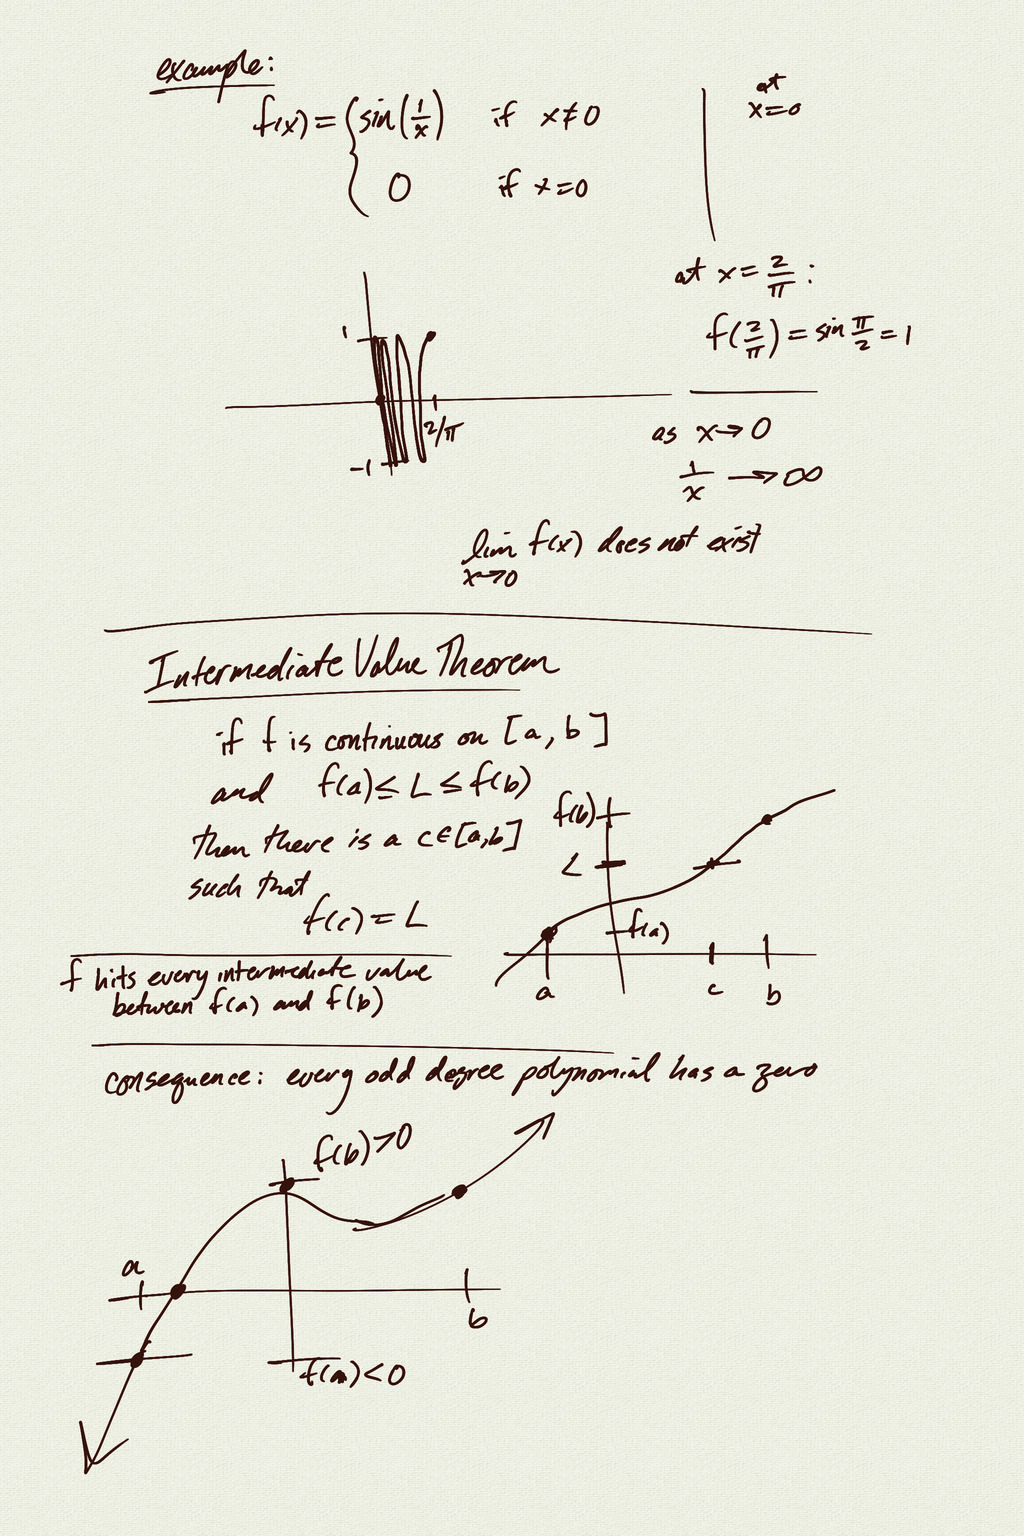 example:
f(x) = { sin(1/x) if x ≠ 0
0 if x = 0
at
x = 0
at x = 2/π :
f(2/π) = sin π/2 = 1
1
2/π
-1
as x → 0
1/x → ∞
lim f(x) does not exist
x→0
Intermediate Value Theorem
if f is continuous on [a, b]
and f(a) ≤ L ≤ f(b)
then there is a c ∈ [a,b]
such that
f(c) = L
f(b)
L
f(a)
a c b
f hits every intermediate value
between f(a) and f(b)
consequence: every odd degree polynomial has a zero
f(b) > 0
a
b
f(a) < 0